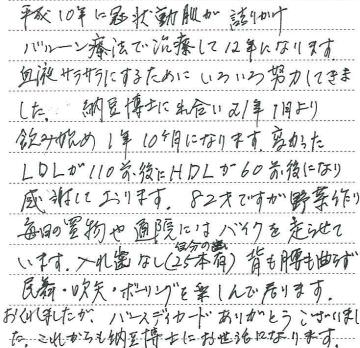 平成10年に冠状動脈が詰りかけ
バルーン療法で治療して12年になります
血液サラサラにするためにいろいろ努力してきま
した。 納豆博士に出合い21年1月より
飲み始め1年10ヶ月になります。高かった
LDLが110前後にHDLが60前後になり
感謝しております。82才ですが野菜作り
毎日の買物や通院にはバイクを走らせて
います。入れ歯なし(自分の歯25本有)背も腰も曲らず
民舞・吹矢・ボーリングを楽しんで居ります。
おくれましたが、バースデイカードありがとうございまし
た。これからも納豆博士にお世話になります。